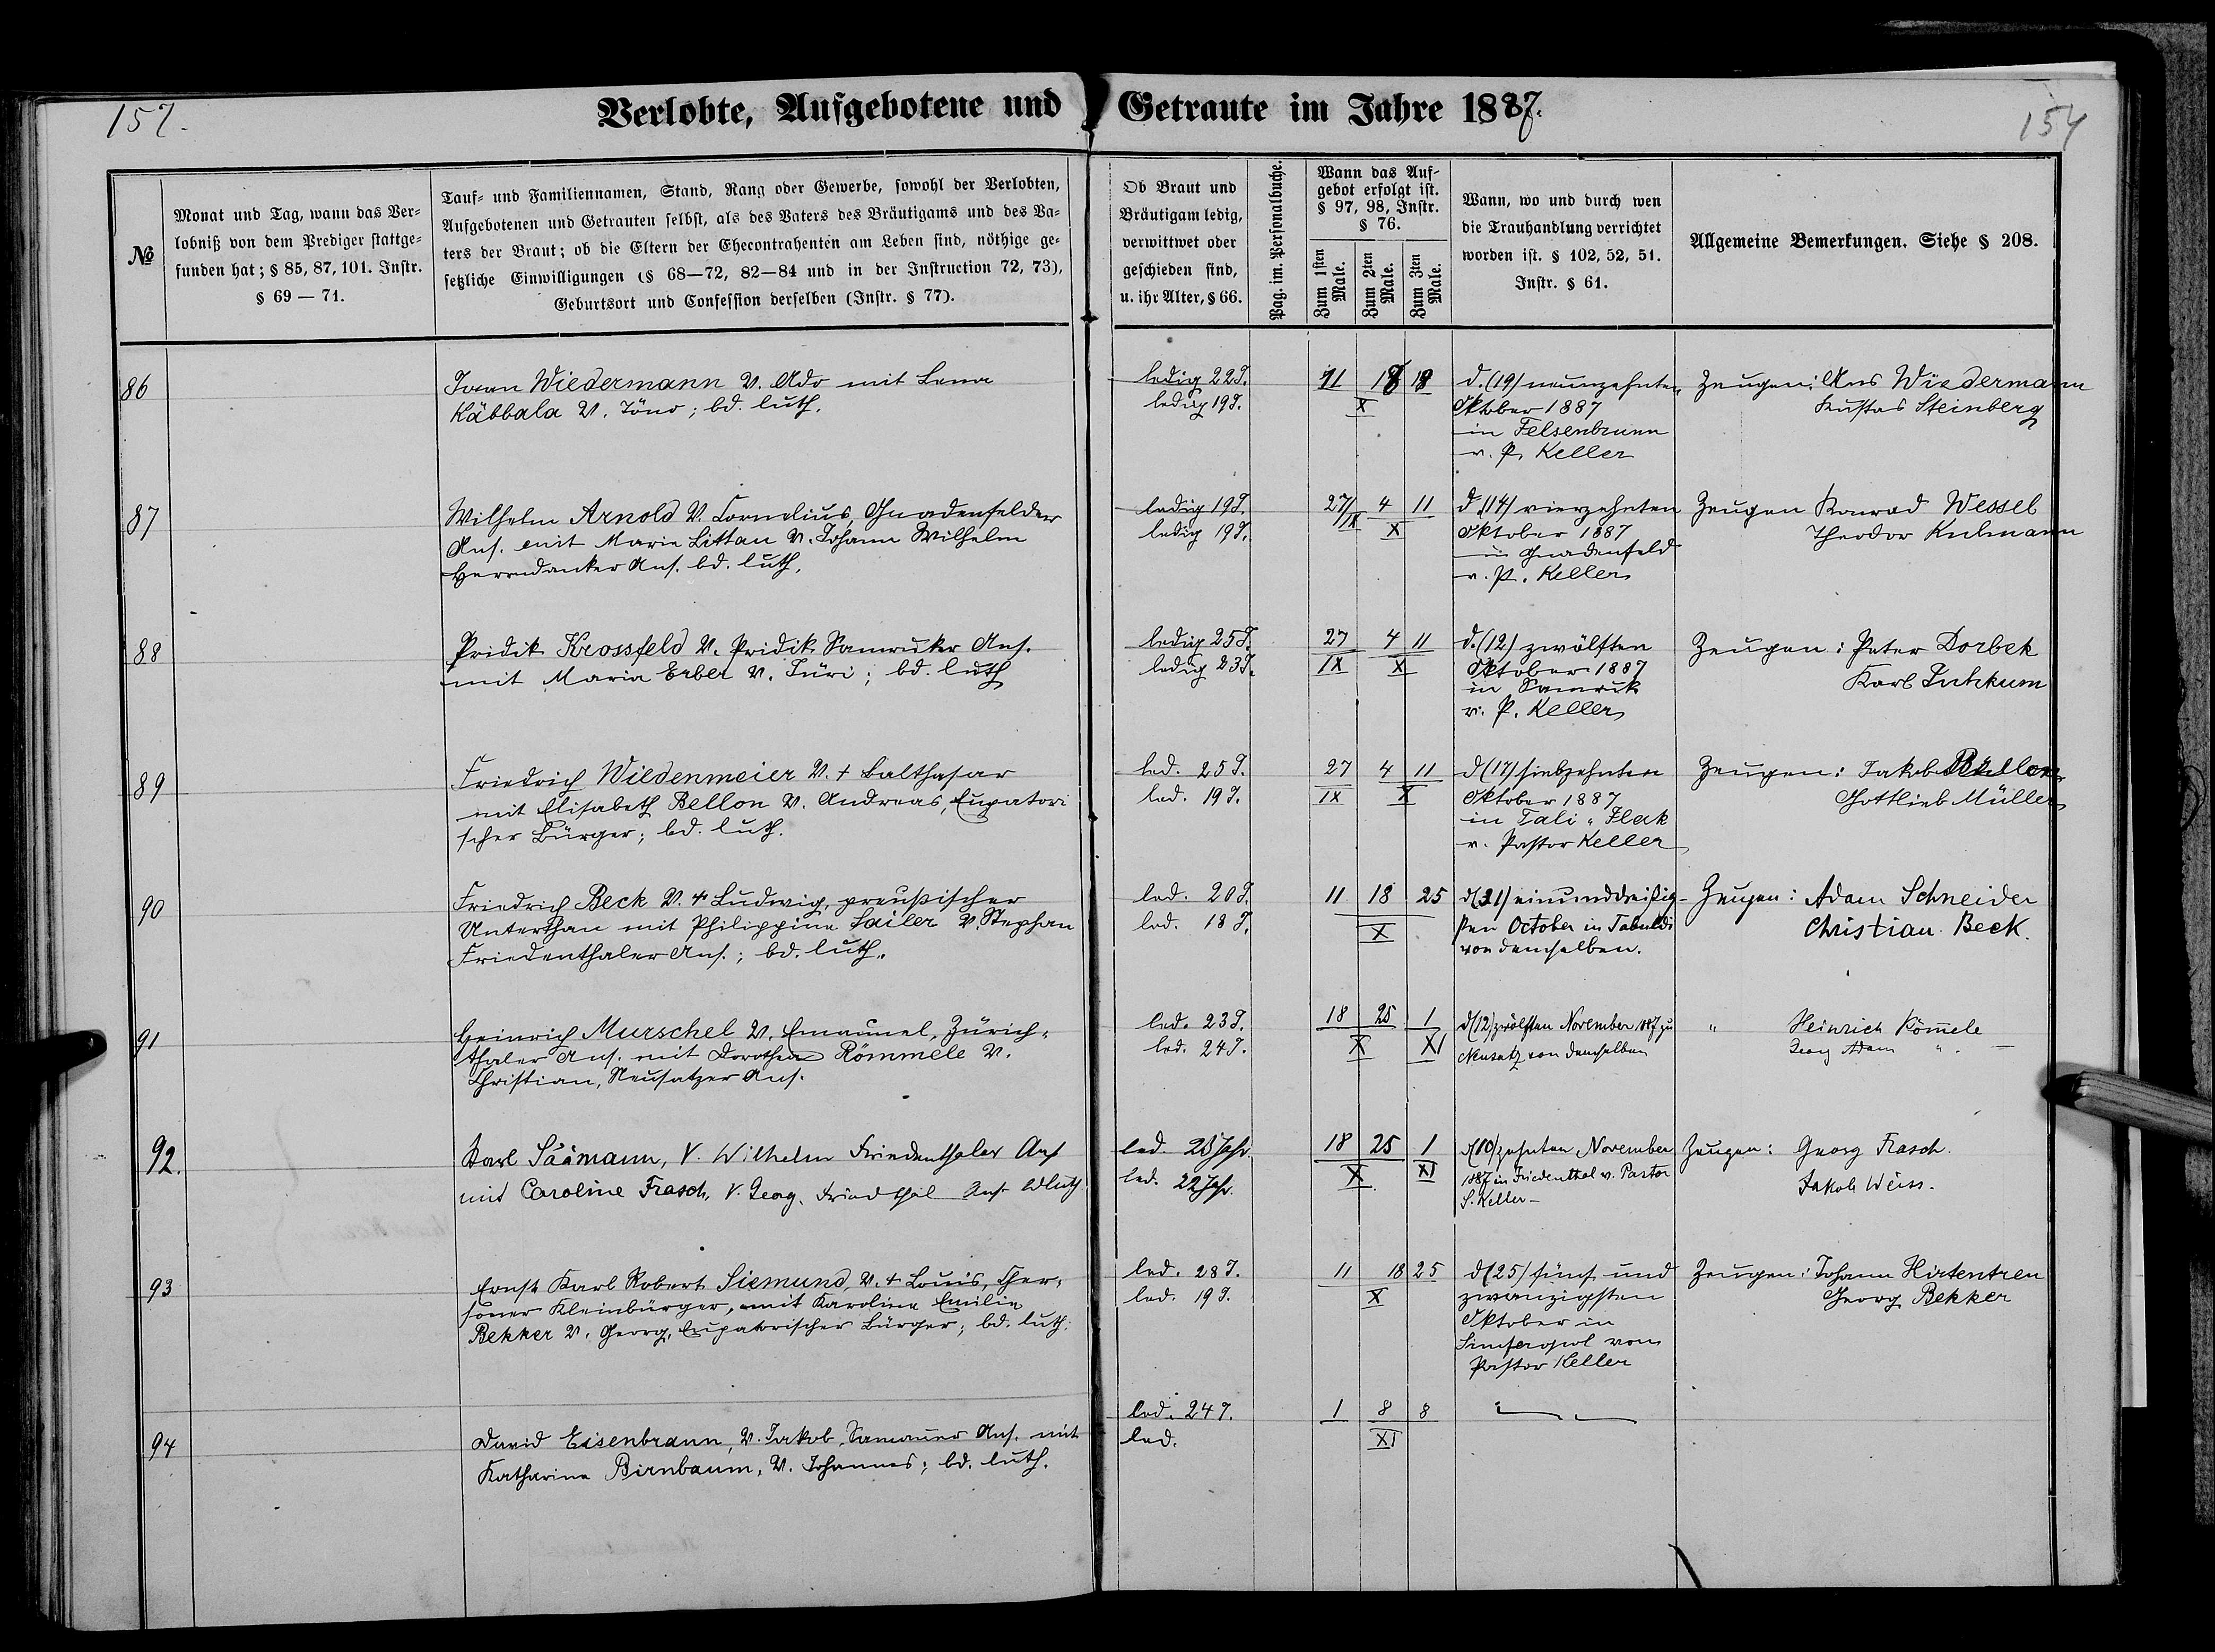 157.
Verlobte, Aufgebotene und Getraute im Jahre 1887.
154
№
Monat und Tag, wann das Ver-
lobniß von dem Prediger stattge-
funden hat; § 85, 87, 101. Instr.
§ 69 — 71.
Tauf- und Familiennamen, Stand, Rang oder Gewerbe, sowohl der Verlobten,
Aufgebotenen und Getrauten selbst, als des Vaters des Bräutigams und des Va-
ters der Braut; ob die Eltern der Ehecontrahenten am Leben sind, nöthige ge-
setzliche Einwilligungen (§ 68—72, 82—84 und in der Instruction 72, 73),
Geburtsort und Confession derselben (Instr. § 77).
Ob Braut und
Bräutigam ledig,
verwittwet oder
geschieden sind,
u. ihr Alter, § 66.
Pag. im. Personalbuche.
Wann das Auf-
gebot erfolgt ist.
§ 97, 98, Instr.
§ 76.
Zum 1sten
Male.
Zum 2ten
Male.
Zum 3ten
Male.
Wann, wo und durch wen
die Trauhandlung verrichtet
worden ist. § 102, 52, 51.
Instr. § 61.
Allgemeine Bemerkungen. Siehe § 208.
86
Iwan Wiedermann V. Ado mit Lena
Käbbala V. Töno; bd. luth.
ledig 22 J.
ledig 19 J.
11 18 18
X
d. (19) neunzehnten
Oktober 1887
in Felsenbrunn
v. P. Keller
Zeugen: Ans Wiedermann
Kustas Steinberg
87
Wilhelm Arnold V. Cornelius, Gnadenfelder
Ans. mit Marie Littau V. Johann Wilhelm
Herrndanker Ans. bd. luth.
ledig 19 J.
ledig 19 J.
27/IX 4 11
X
d. (14) vierzehnten
Oktober 1887
in Gnadenfeld
v. P. Keller
Zeugen Konrad Wessel
Theodor Kulmann
88
Pridik Krossfeld V. Pridik Samruker Ans.
mit Maria Erber V. Jüri; bd. luth
ledig 25 J.
ledig 23 J.
27 4 11
IX X
d. (12) zwölften
Oktober 1887
in Samruk
v. P. Keller
Zeugen: Peter Dorbek
Karl Juhkum
89
Friedrich Wiedenmeier V. + Balthasar
mit Elisabeth Bellon V. Andreas, Eupatori
scher Bürger; bd. luth.
led. 25 J.
led. 19 J.
27 4 11
IX X
d (17) siebzehnten
Oktober 1887
in Tali-Ilak
v. Pastor Keller
Zeugen: Jakob Bellon
Gottlieb Müller
90
Friedrich Beck V. + Ludwig, preußischer
Unterthan mit Philippine Sailer V. Stephan
Friedenthaler Ans.; bd. luth.
led. 20 J.
led. 18 J.
11 18 25
X
d (31) einunddreißig-
sten October in Tabuldi
von demselben.
Zeugen: Adam Schneider
Christian Beck.
91
Heinrich Murschel V. Emanuel, Zürich-
thaler Ans. mit Dorothea Römmele V.
Christian, Neusatzer Ans.
led. 23 J.
led. 24 J.
18 25 1
X XI
d (12) zwölften November 1887 zu
Neusatz von demselben
" Heinrich Römele
Georg Adam " —
92.
Karl Säämann, V. Wilhelm Friedenthaler Ans
mit Caroline Frasch, V. Georg, Friedthal Ans. bd luth
led. 25 Jahr.
led. 22 Jahr.
18 25 1
X XI
d (10) zehnten November
1887 in Friedenthal v. Pastor
S. Keller—
Zeugen: Georg Frasch.
Jakob Weiss.
93
Ernst Karl Robert Siemund, V. + Louis, Cher-
soner Kleinbürger, mit Karoline Emilie
Bekker V. Georg, Eupatorischer Bürger; bd. luth.
led. 28 J.
led. 19 J.
11 18 25
X
d (25) fünf und
zwanzigsten
Oktober in
Simferopol von
Pastor Keller
Zeugen: Johann Hirtentreu
Georg Bekker
94
David Eisenbraun, V. Jakob, Ans. mit
Katharina Birnbaum, V. Johannes; bd. luth.
led. 24 J.
led.
1 8 8
XI